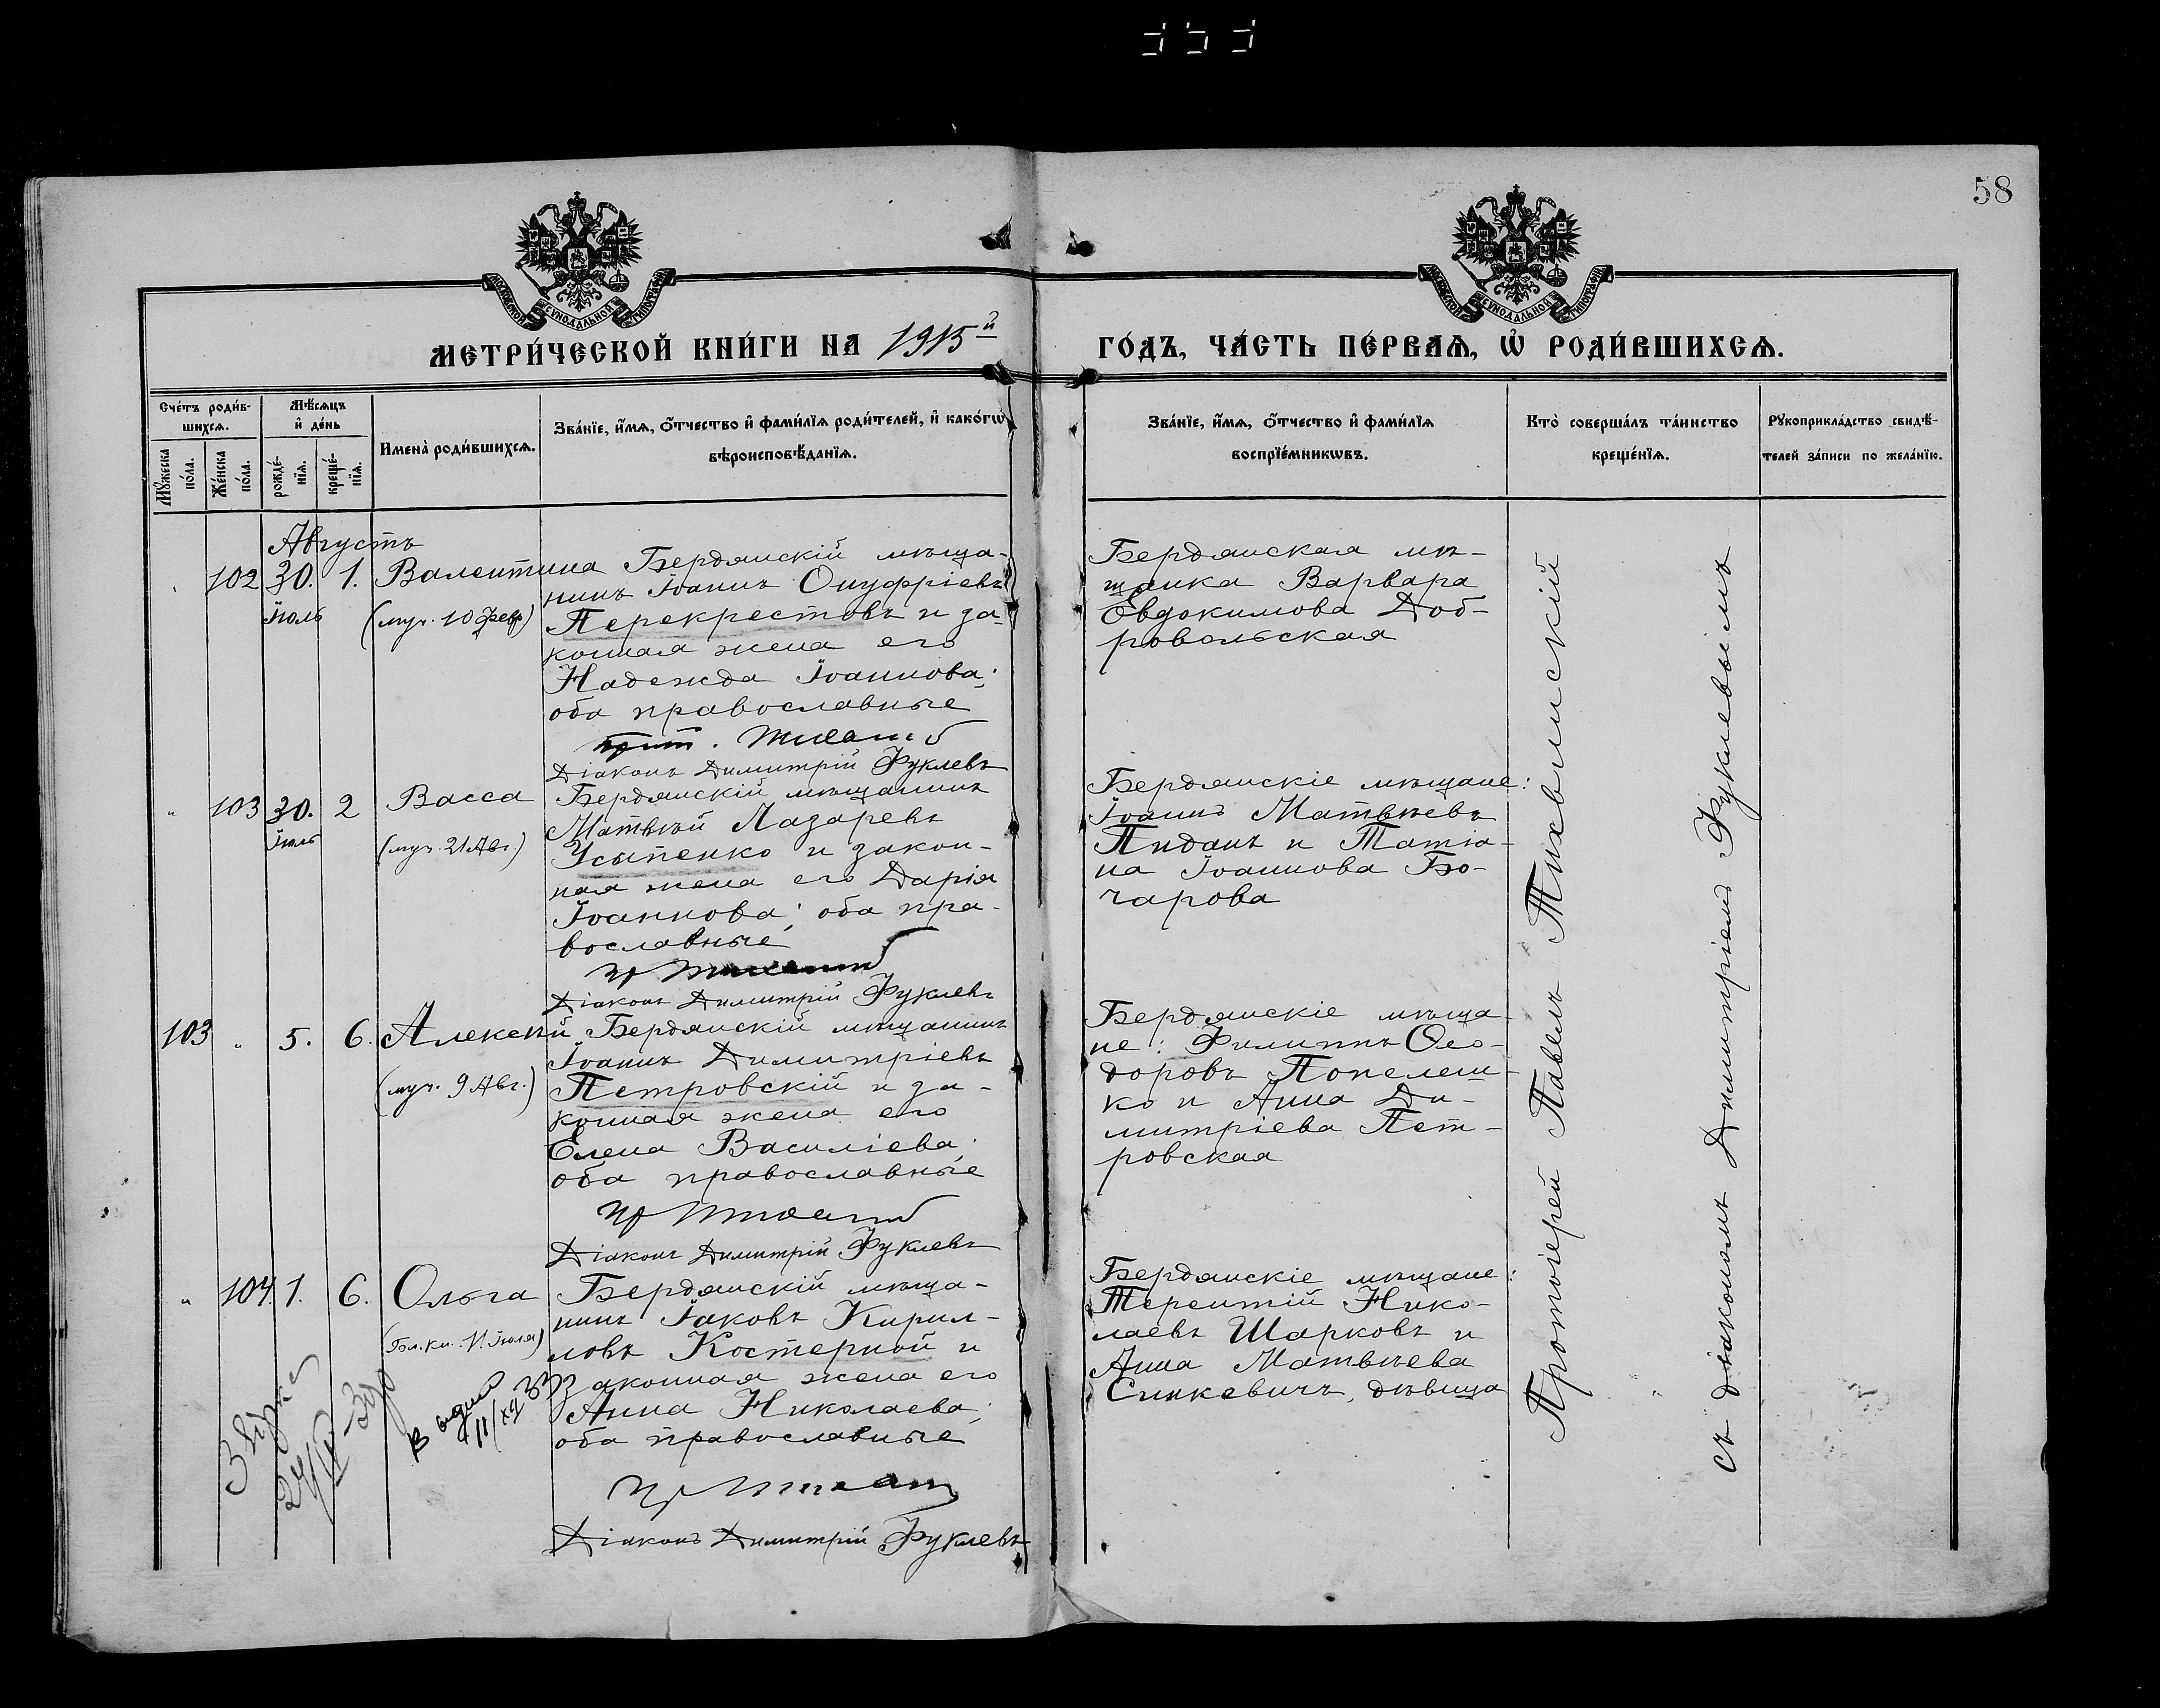 58
МОСКОВСКОЙ СѴНОДАЛЬНОЙ ТИПОГРАФІИ
МОСКОВСКОЙ СѴНОДАЛЬНОЙ ТИПОГРАФІИ
МЕТРИ́ЧЕСКОЙ КНИ́ГИ НА 1915й
ГО́ДЪ, ЧА́СТЬ ПЕ́РВАѦ, Ѡ҆ РОДИ́ВШИХСѦ.
Сче́тъ роди́в-
шихсѧ.
Мꙋ́жеска
по́ла.
Же́нска
по́ла.
Мѣ́сѧцъ
и҆ де́нь
рожде́-
нїѧ.
креще́-
нїѧ.
Имена̀ роди́вшихсѧ.
Зва́нїе, и҆́мѧ, ѻ҆́тчество и҆ фами́лїѧ роди́телей, и҆ како́гѡ
вѣроисповѣ́данїѧ.
Зва́нїе, и҆́мѧ, ѻ҆́тчество и҆ фами́лїѧ
воспрїе́мникѡвъ.
Кто̀ соверша́лъ та́инство
креще́нїѧ.
Рꙋкоприкла́дство свидѣ́-
телей за́писи по жела́нїю.
Августъ
102 30. 1. Валентина
Іюль
(муч. 10 Февр)
Бердянскій мѣща-
нинъ Іоаннъ Онуфріевъ
Перекрестовъ и за-
конная жена его
Надежда Іоаннова;
оба православные
Діаконъ Димитрій Фуклевъ
Бердянская мѣ-
щанка Варвара
Евдокимова Доб-
ровольская
" 103 30. 2 Васса
Іюль
(муч. 21 Авг.)
Бердянскій мѣщанинъ
Матвѣй Лазаревъ
Усыпенко и закон-
ная жена его Дарія
Іоаннова; оба пра-
вославные
Діаконъ Димитрій Фуклевъ
Бердянскіе мѣщане:
Іоаннъ Матвѣевъ
Пиданъ и Татіа-
на Іоаннова Бо-
чарова
103 " 5. 6. Алексѣй
(муч. 9 Авг.)
Бердянскій мѣщанинъ
Іоаннъ Димитріевъ
Петровскій и за-
конная жена его
Елена Василіева;
оба православные
Діаконъ Димитрій Фуклевъ
Бердянскіе мѣща-
не: Филиппъ Ѳео-
доровъ Попелеш-
ко и Анна Ди-
митріева Пет-
ровская
" 104. 1. 6. Ольга
(Бл. кн. 11 Іюля)
Бердянскій мѣща-
нинъ Іаковъ Кирил-
ловъ Костерной и
законная жена его
Анна Николаева;
оба православные
Діаконъ Димитрій Фуклевъ
Бердянскіе мѣщане:
Терентій Нико-
лаевъ Шарковъ и
Анна Матвѣева
Синкевичъ, дѣвица
Протоіерей Павелъ Тихвинскій
съ діакономъ Димитріемъ Фуклевымъ